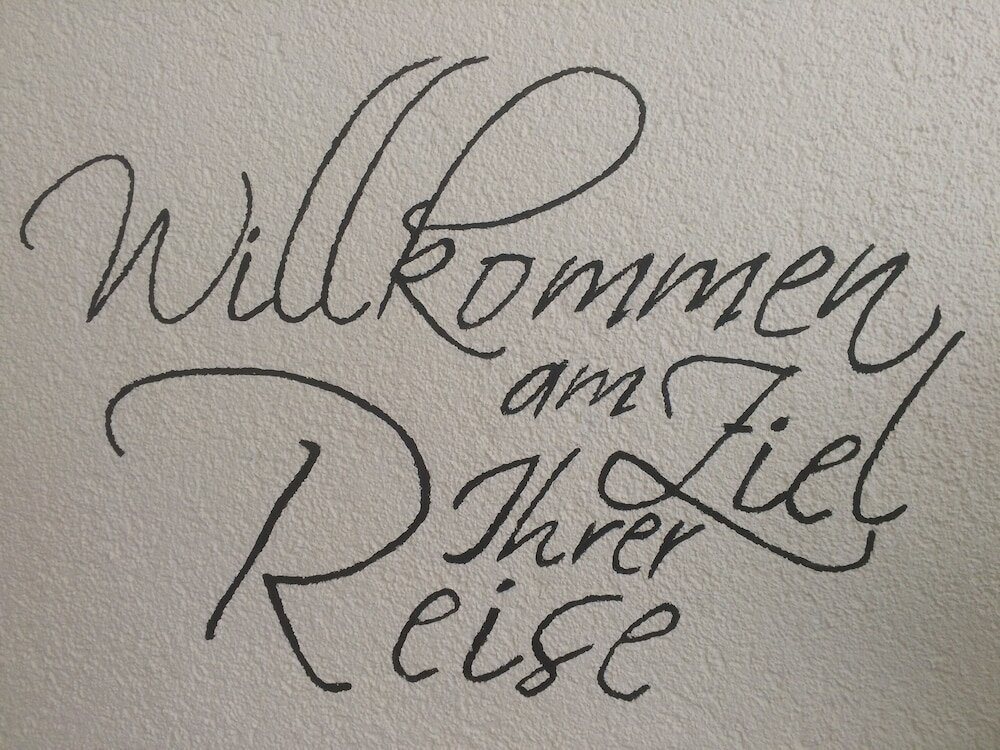 Willkommen
am Ziel
Ihrer
Reise